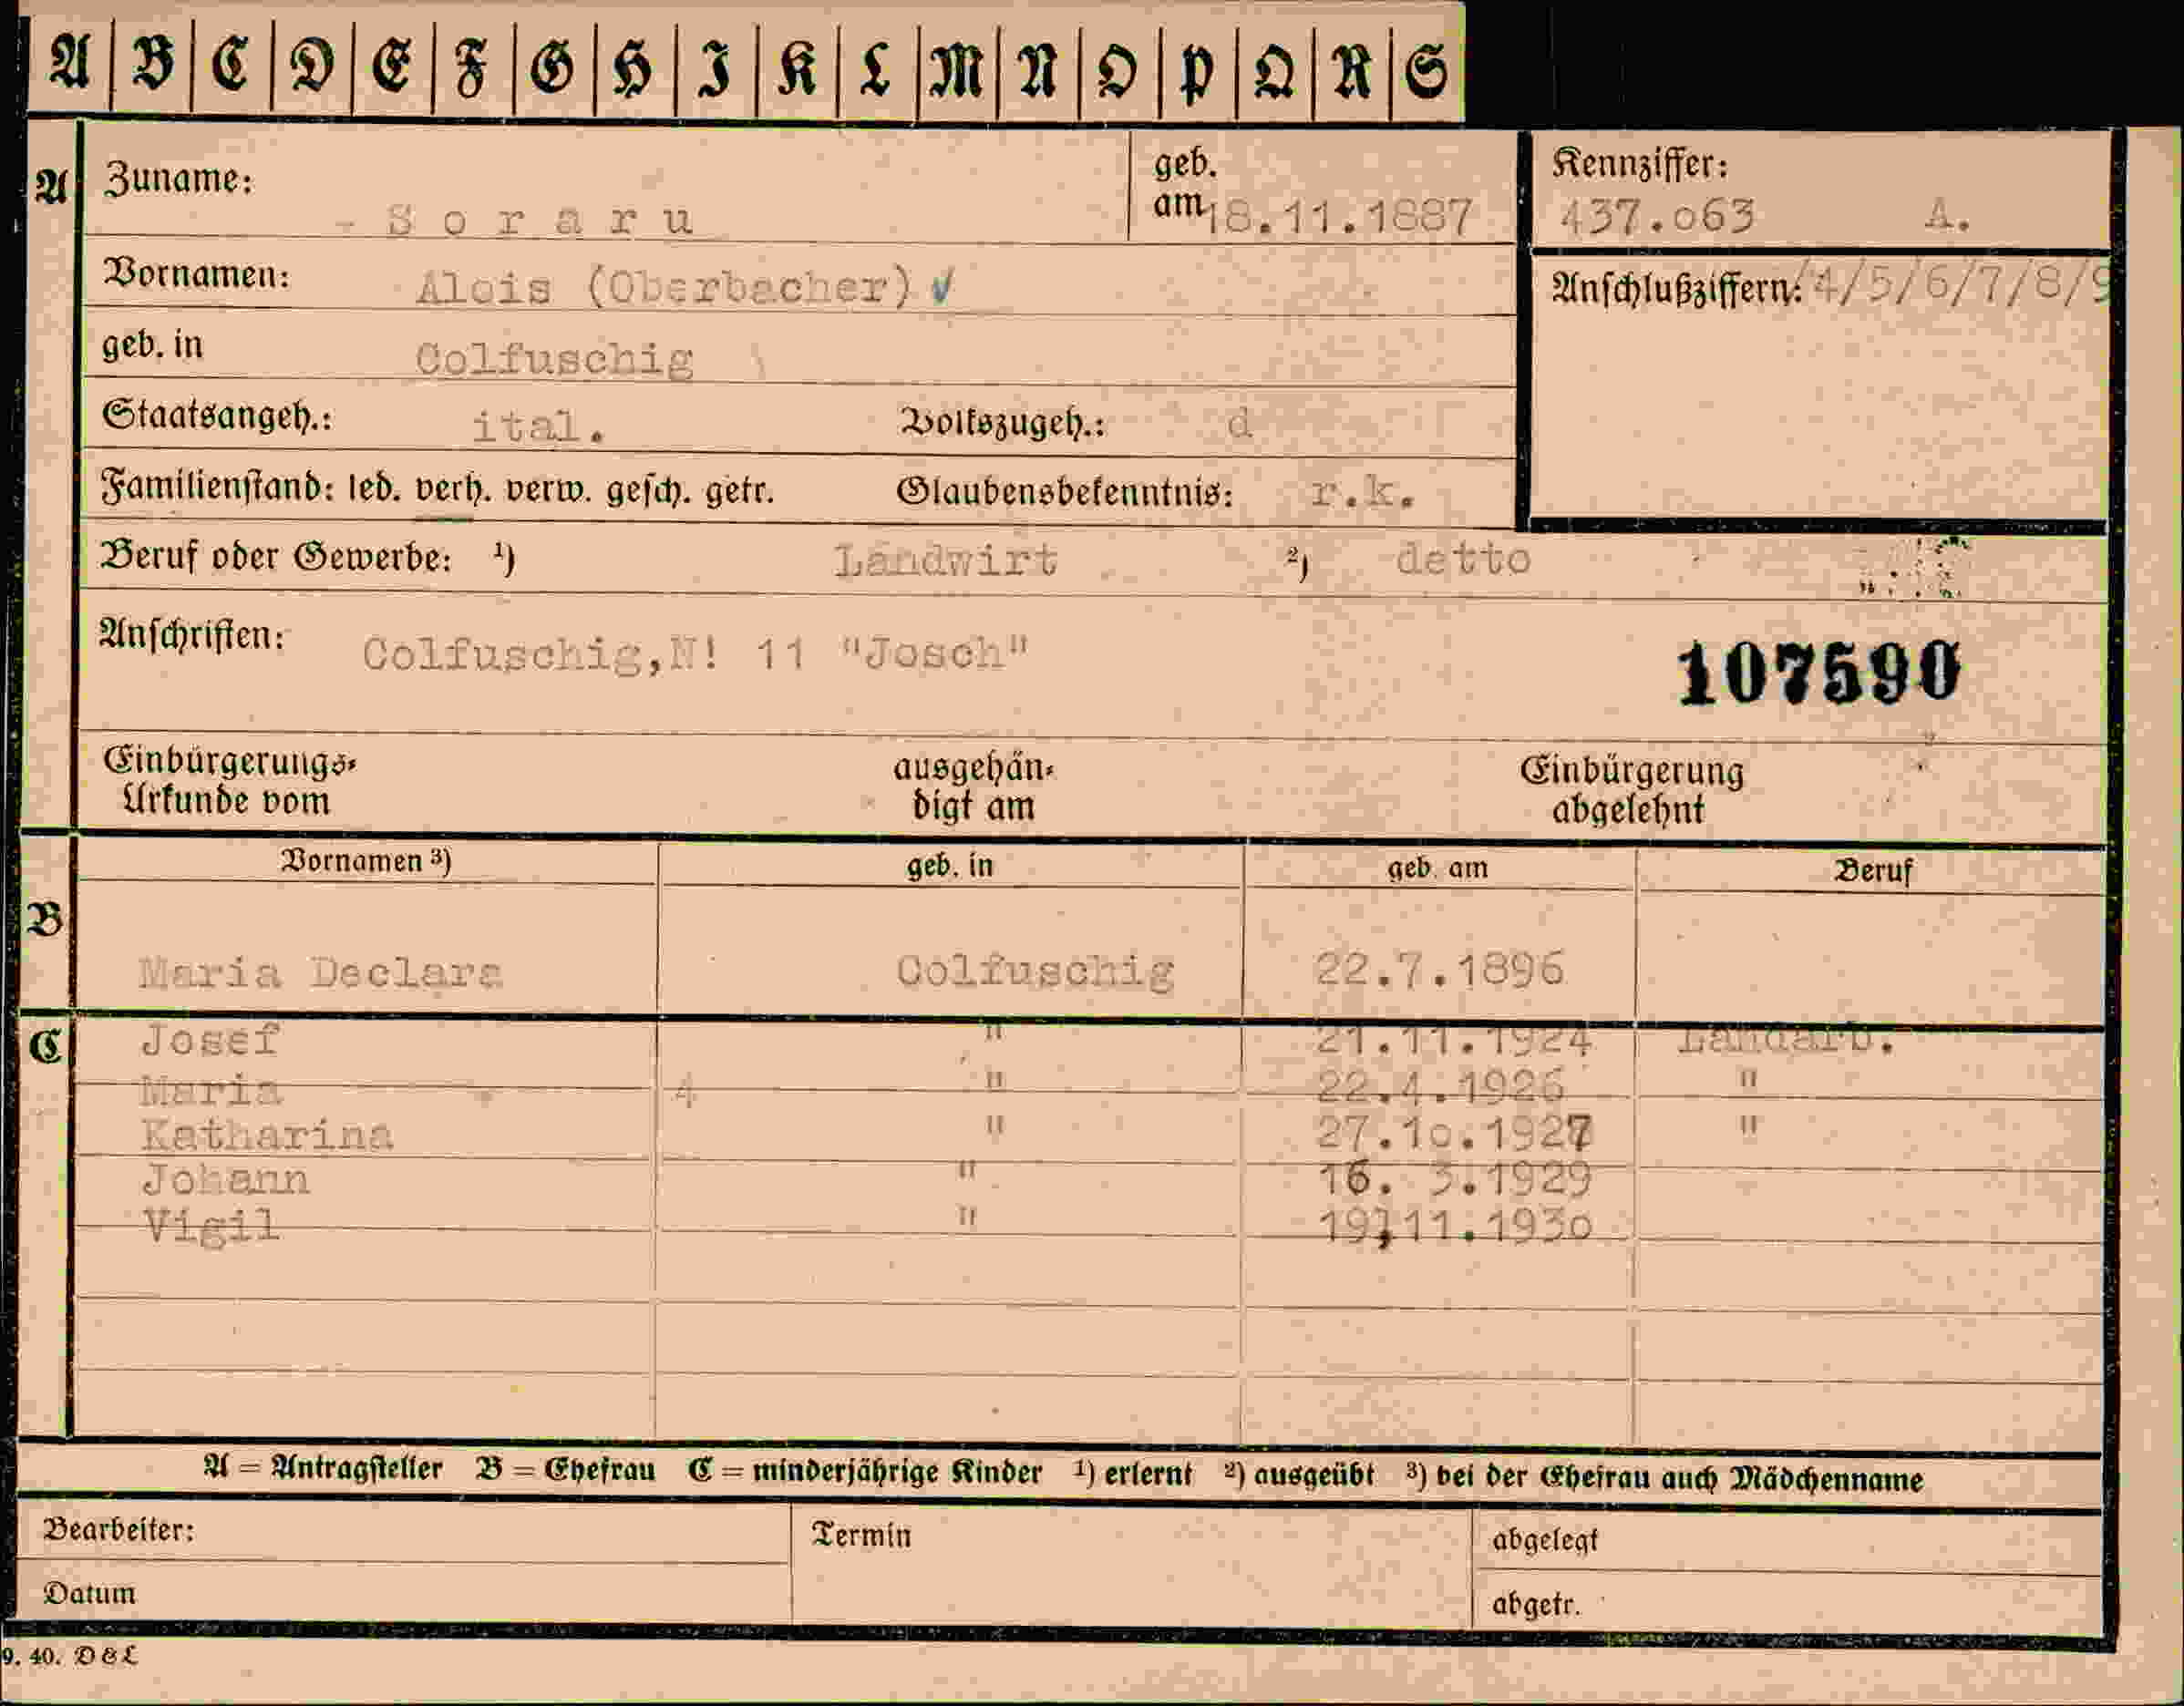 A B C D E F G H I K L M N O P Q R S
A Zuname: - S o r a r u geb. am 18.11.1887 Kennziffer: 437.o63 A.
Vornamen: Alois (Oberbacher) ✓ Anschlußziffern: /4/5/6/7/8/9
geb. in Colfuschig
Staatsangeh.: ital. Volkszugeh.: d
Familienstand: led. verh. verw. gesch. getr. Glaubensbekenntnis: r.k.
Beruf oder Gewerbe: ¹) Landwirt ²) detto
Anschriften: Colfuschig,N! 11 "Josch"
107590
Einbürgerungs- ausgehän- Einbürgerung
Urkunde vom digt am abgelehnt
Vornamen ³) geb. in geb. am Beruf
B
Maria Declara Colfuschig 22.7.1896
C Josef " 21.11.1924 Landarb.
Maria 4 " 22.4.1926 "
Katharina " 27.1o.1927 "
Johann " 16. 3.1929
Vigil " 19.11.193o
A = Antragsteller B = Ehefrau C = minderjährige Kinder ¹) erlernt ²) ausgeübt ³) bei der Ehefrau auch Mädchenname
Bearbeiter: Termin abgelegt
Datum abgetr.
9. 40. D & L